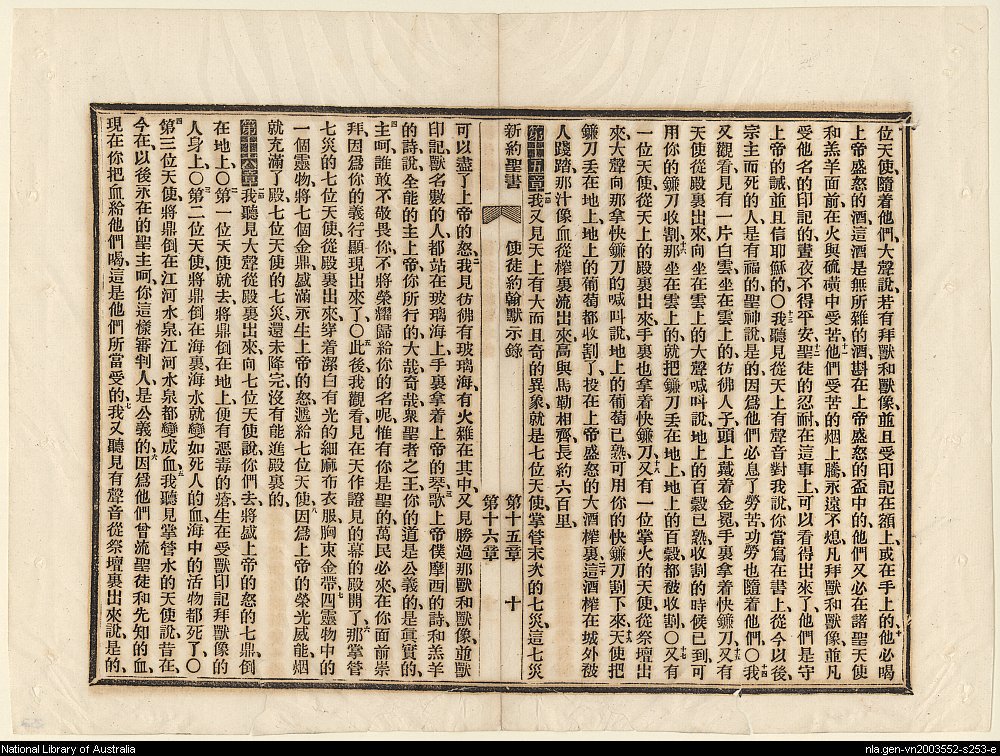 位天使隨着他們、大聲說、若有拜獸和獸像、並且受印記在額上、或在手上的、十他必喝
上帝盛怒的酒、這酒是無所雜的酒、斟在上帝盛怒的盃中的、他們又必在諸聖天使
和羔羊面前、在火與硫磺中受苦、十一他們受苦的烟上騰、永遠不熄、凡拜獸和獸像、並凡
受他名的印記的、晝夜不得平安、十二聖徒的忍耐、在這事上可以看得出來了、他們是守
上帝的誡、並且信耶穌的〇十三我聽見從天上有聲音對我說、你當寫在書上、從今以後
宗主而死的人是有福的、聖神說、是的、因爲他們必息了勞苦、功勞也隨着他們〇十四我
又觀看、見有一片白雲、坐在雲上的、彷彿人子、頭上戴着金冕、手裏拿着快鐮刀、十五又有
天使從殿裏出來、向坐在雲上的大聲喊叫說、地上的百穀已熟、收割的時候已到、可
用你的鐮刀收割、十六那坐在雲上的、就把鐮刀丟在地上、地上的百穀都被收割〇十七又有
一位天使、從天上的殿裏出來、手裏也拿着快鐮刀、十八又有一位掌火的天使、從祭壇出
來、大聲向那拿快鐮刀的喊叫說、地上的葡萄已熟、可用你的快鐮刀割下來、十九天使把
鐮刀丟在地上、地上的葡萄都收割了、投在上帝盛怒的大酒榨裏、二十這酒榨在城外被
人踐踏、那汁像血從榨裏流出來、高與馬勒相齊、長約六百里
第十五章一我又見天上有大而且奇的異象、就是七位天使、掌管末次的七災、這七災
新約聖書 使徒約翰默示錄 第十五章 第十六章 十
可以盡了上帝的怒、二我見彷彿有玻璃海、有火雜在其中、又見勝過那獸和獸像、並獸
印記、獸名數的人、都站在玻璃海上、手裏拿着上帝的琴、三歌上帝僕摩西的詩、和羔羊
的詩說、全能的主上帝、你所行的大哉奇哉、衆聖者之王、你的道是公義的、是眞實的、
四主呵、誰敢不敬畏你、不將榮耀歸給你的名呢、惟有你是聖的、萬民必來在你面前崇
拜、因爲你的義行顯現出來了〇五此後我觀看、見在天作證見的幕的殿開了、六那掌管
七災的七位天使、從殿裏出來、穿着潔白有光的細麻布衣服、胸束金帶、七四靈物中的
一個靈物、將七個金鼎盛滿永生上帝的怒、遞給七位天使、八因爲上帝的榮光威能、烟
就充滿了殿、七位天使的七災還未降完、沒有能進殿裏的、
第十六章一我聽見大聲從殿裏出來、向七位天使說、你們去、將盛上帝的怒的七鼎倒
在地上、〇二第一位天使就去、將鼎倒在地上、便有惡毒的瘡、生在受獸印記拜獸像的
人身上、〇三第二位天使將鼎倒在海裏、海水就變如死人的血、海中的活物都死了、〇
四第三位天使、將鼎倒在江河水泉、江河水泉都變成血、五我聽見掌管水的天使說、昔在
今在以後永在的聖主呵、你這樣審判人是公義的、六因爲他們曾流聖徒和先知的血、
現在你把血給他們喝、這是他們所當受的、七我又聽見有聲音從祭壇裏出來說、是的、
National Library of Australia
nla.gen-vn2003552-s253-e